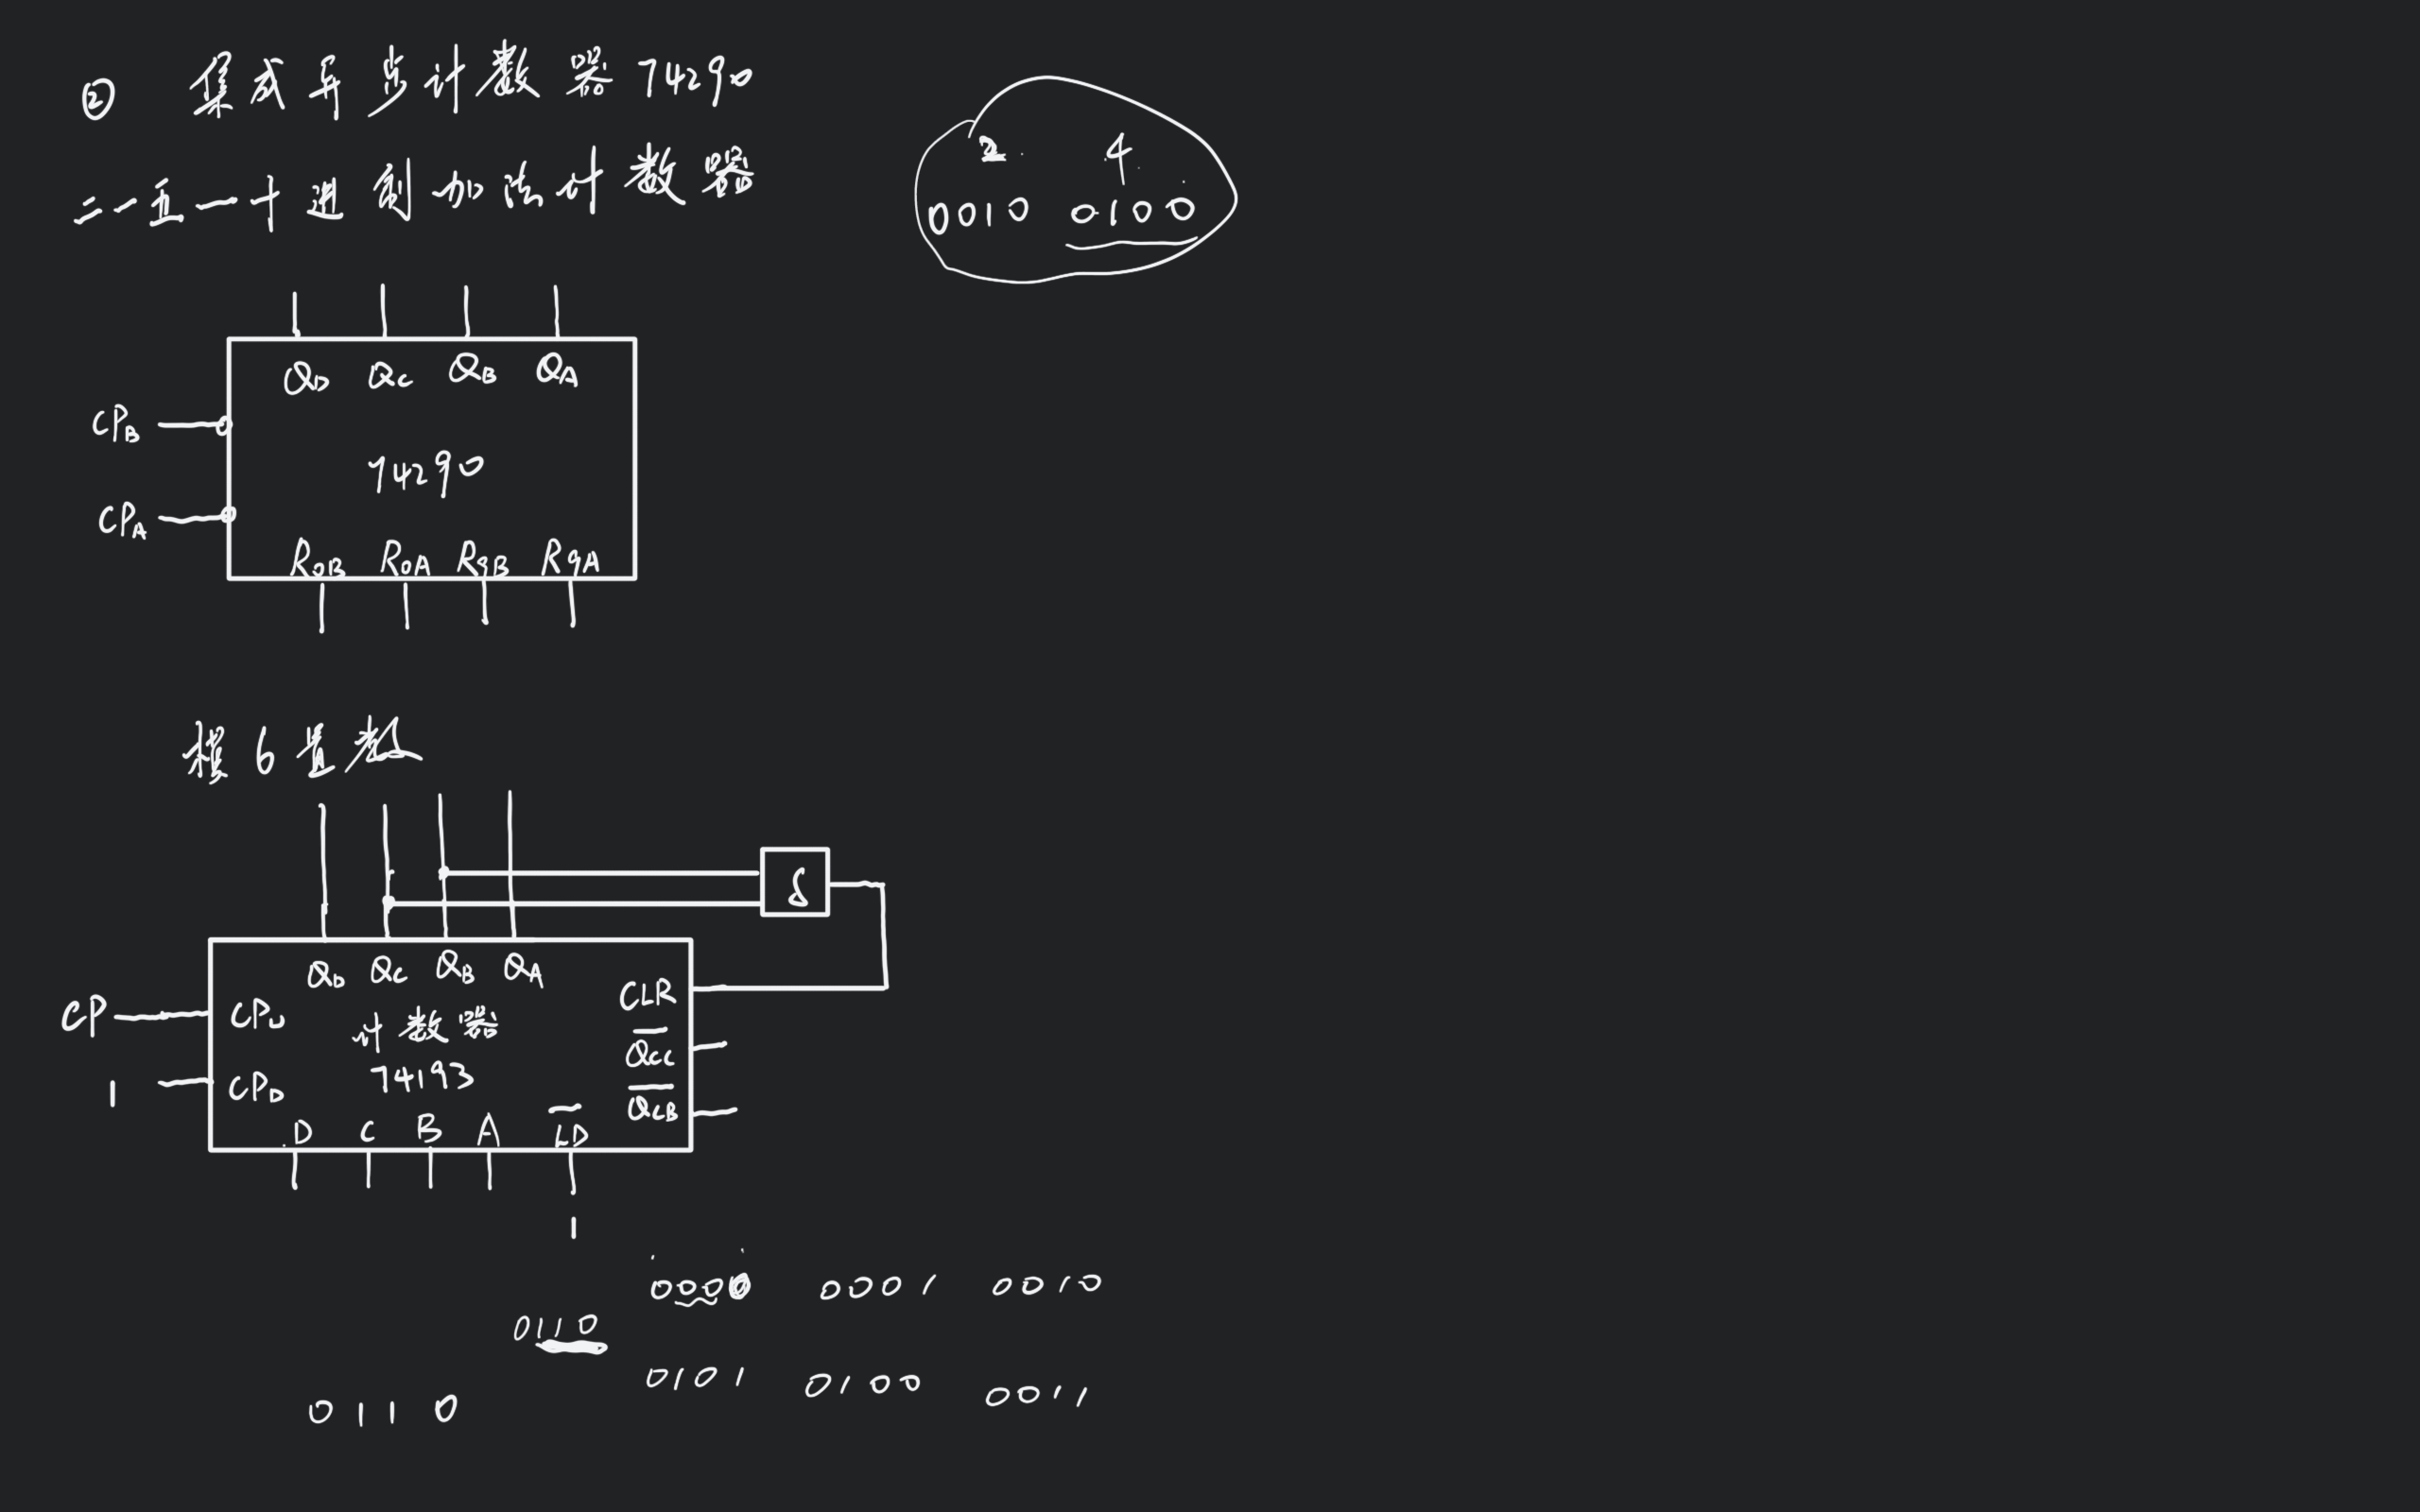 ② 集成异步计数器74290
二一五一十进制加法计数器
2 4
0010 0100
QD QC QB QA
CPB
74290
CPA
R0B R0A R9B R9A
模6
&
QD QC QB QA
CLR
CP CPU 计数器
QCC
1 CPD 74193
QCB
D C B A LD
1
0000 0001 0010
0110
0101 0100 0011
0110